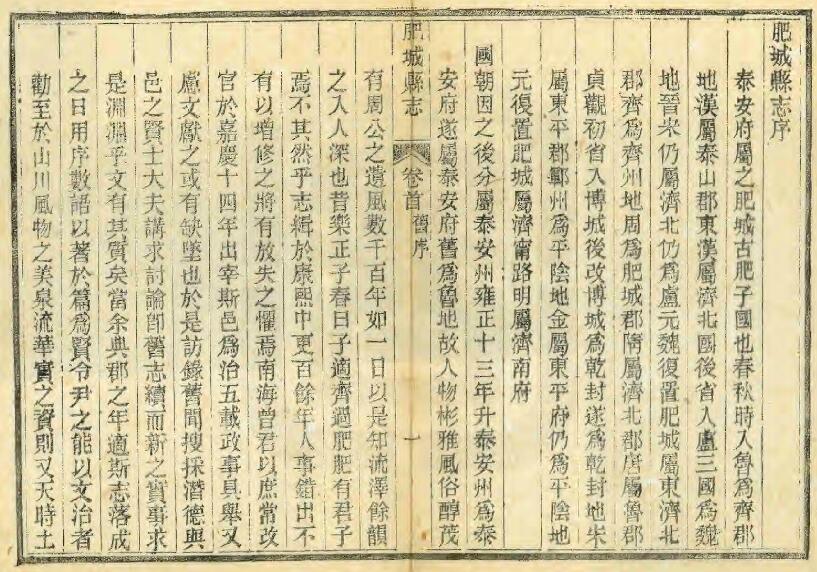 肥城縣志序
泰安府屬之肥城古肥子國也春秋時入魯爲齊郡
地漢屬泰山郡東漢屬濟北國後省入盧三國爲魏
地晉宋仍屬濟北仍爲盧元魏復置肥城屬東濟北
郡齊爲齊州地周爲肥城郡隋屬濟北郡唐屬魯郡
貞觀初省入博城後改博城爲乾封遂爲乾封地宋
屬東平郡鄆州爲平陰地金屬東平府仍爲平陰地
元復置肥城屬濟甯路明屬濟南府
國朝因之後分屬泰安州雍正十三年升泰安州爲泰
安府遂屬泰安府舊爲魯地故人物彬雅風俗醇茂
肥城縣志 卷首 舊序 一
有周公之遺風數千百年如一日以是知流澤餘韻
之入人深也昔樂正子春曰子適齊過肥肥有君子
焉不其然乎志緝於康熙中更百餘年人事錯出不
有以增修之將有放失之懼焉南海曾君以庶常改
官於嘉慶十四年出宰斯邑爲治五載政事具舉又
慮文獻之或有缺墜也於是訪錄舊聞搜採潛德與
邑之賢士大夫講求討論卽舊志續而新之實事求
是淵淵乎文有其質矣當余與郡之年適斯志落成
之日用序數語以著於篇爲賢令尹之能以文治者
勸至於山川風物之美泉流華實之資則又天時土